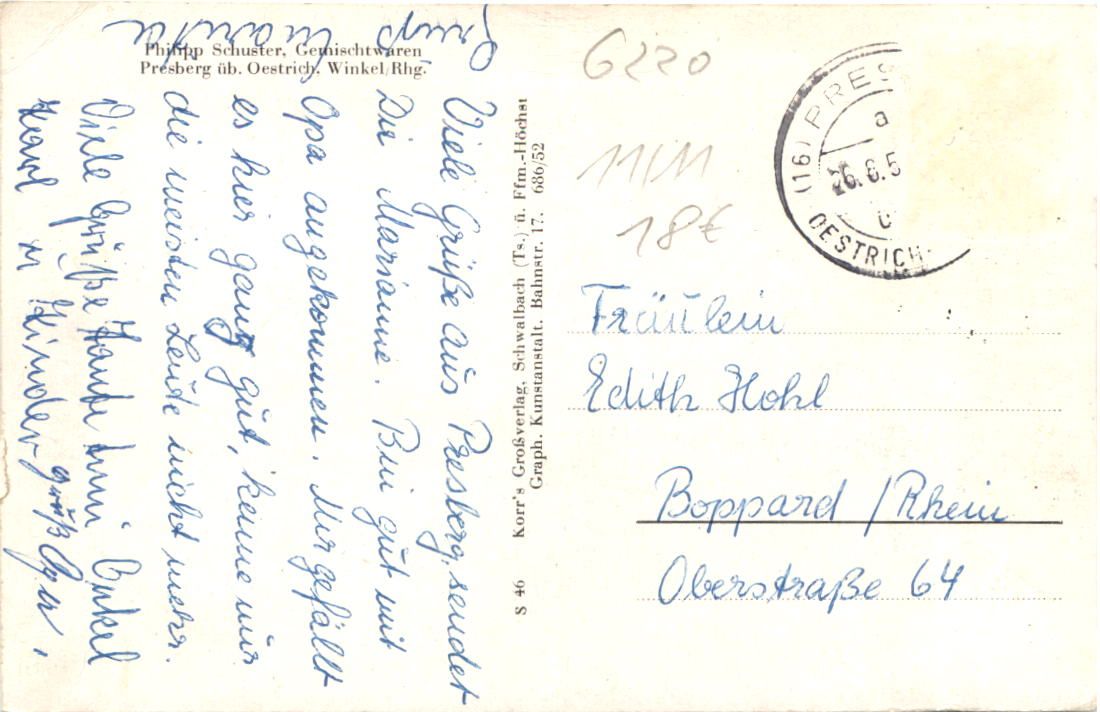 Philipp Schuster, Gemischtwaren
Presberg üb. Oestrich, Winkel/Rhg.
Viele Grüße aus Presberg, sendet
Die Marianne. Bin gut mit
Opa angekommen. Mir gefällt
es hier ganz gut, kenne nur
die meisten Leute nicht mehr.
Viele Grüße Tante Onkel
Karl u Kinder
Gruß
S 46 Korr's Großverlag, Schwalbach (Ts.) ü. Ffm.-Höchst
Graph. Kunstanstalt. Bahnstr. 17. 686/52
6220
11/11
18€
(16) PRES
a
26.6.5
OESTRICH
Fräulein
Edith Hohl
Boppard /Rhein
Oberstraße 64